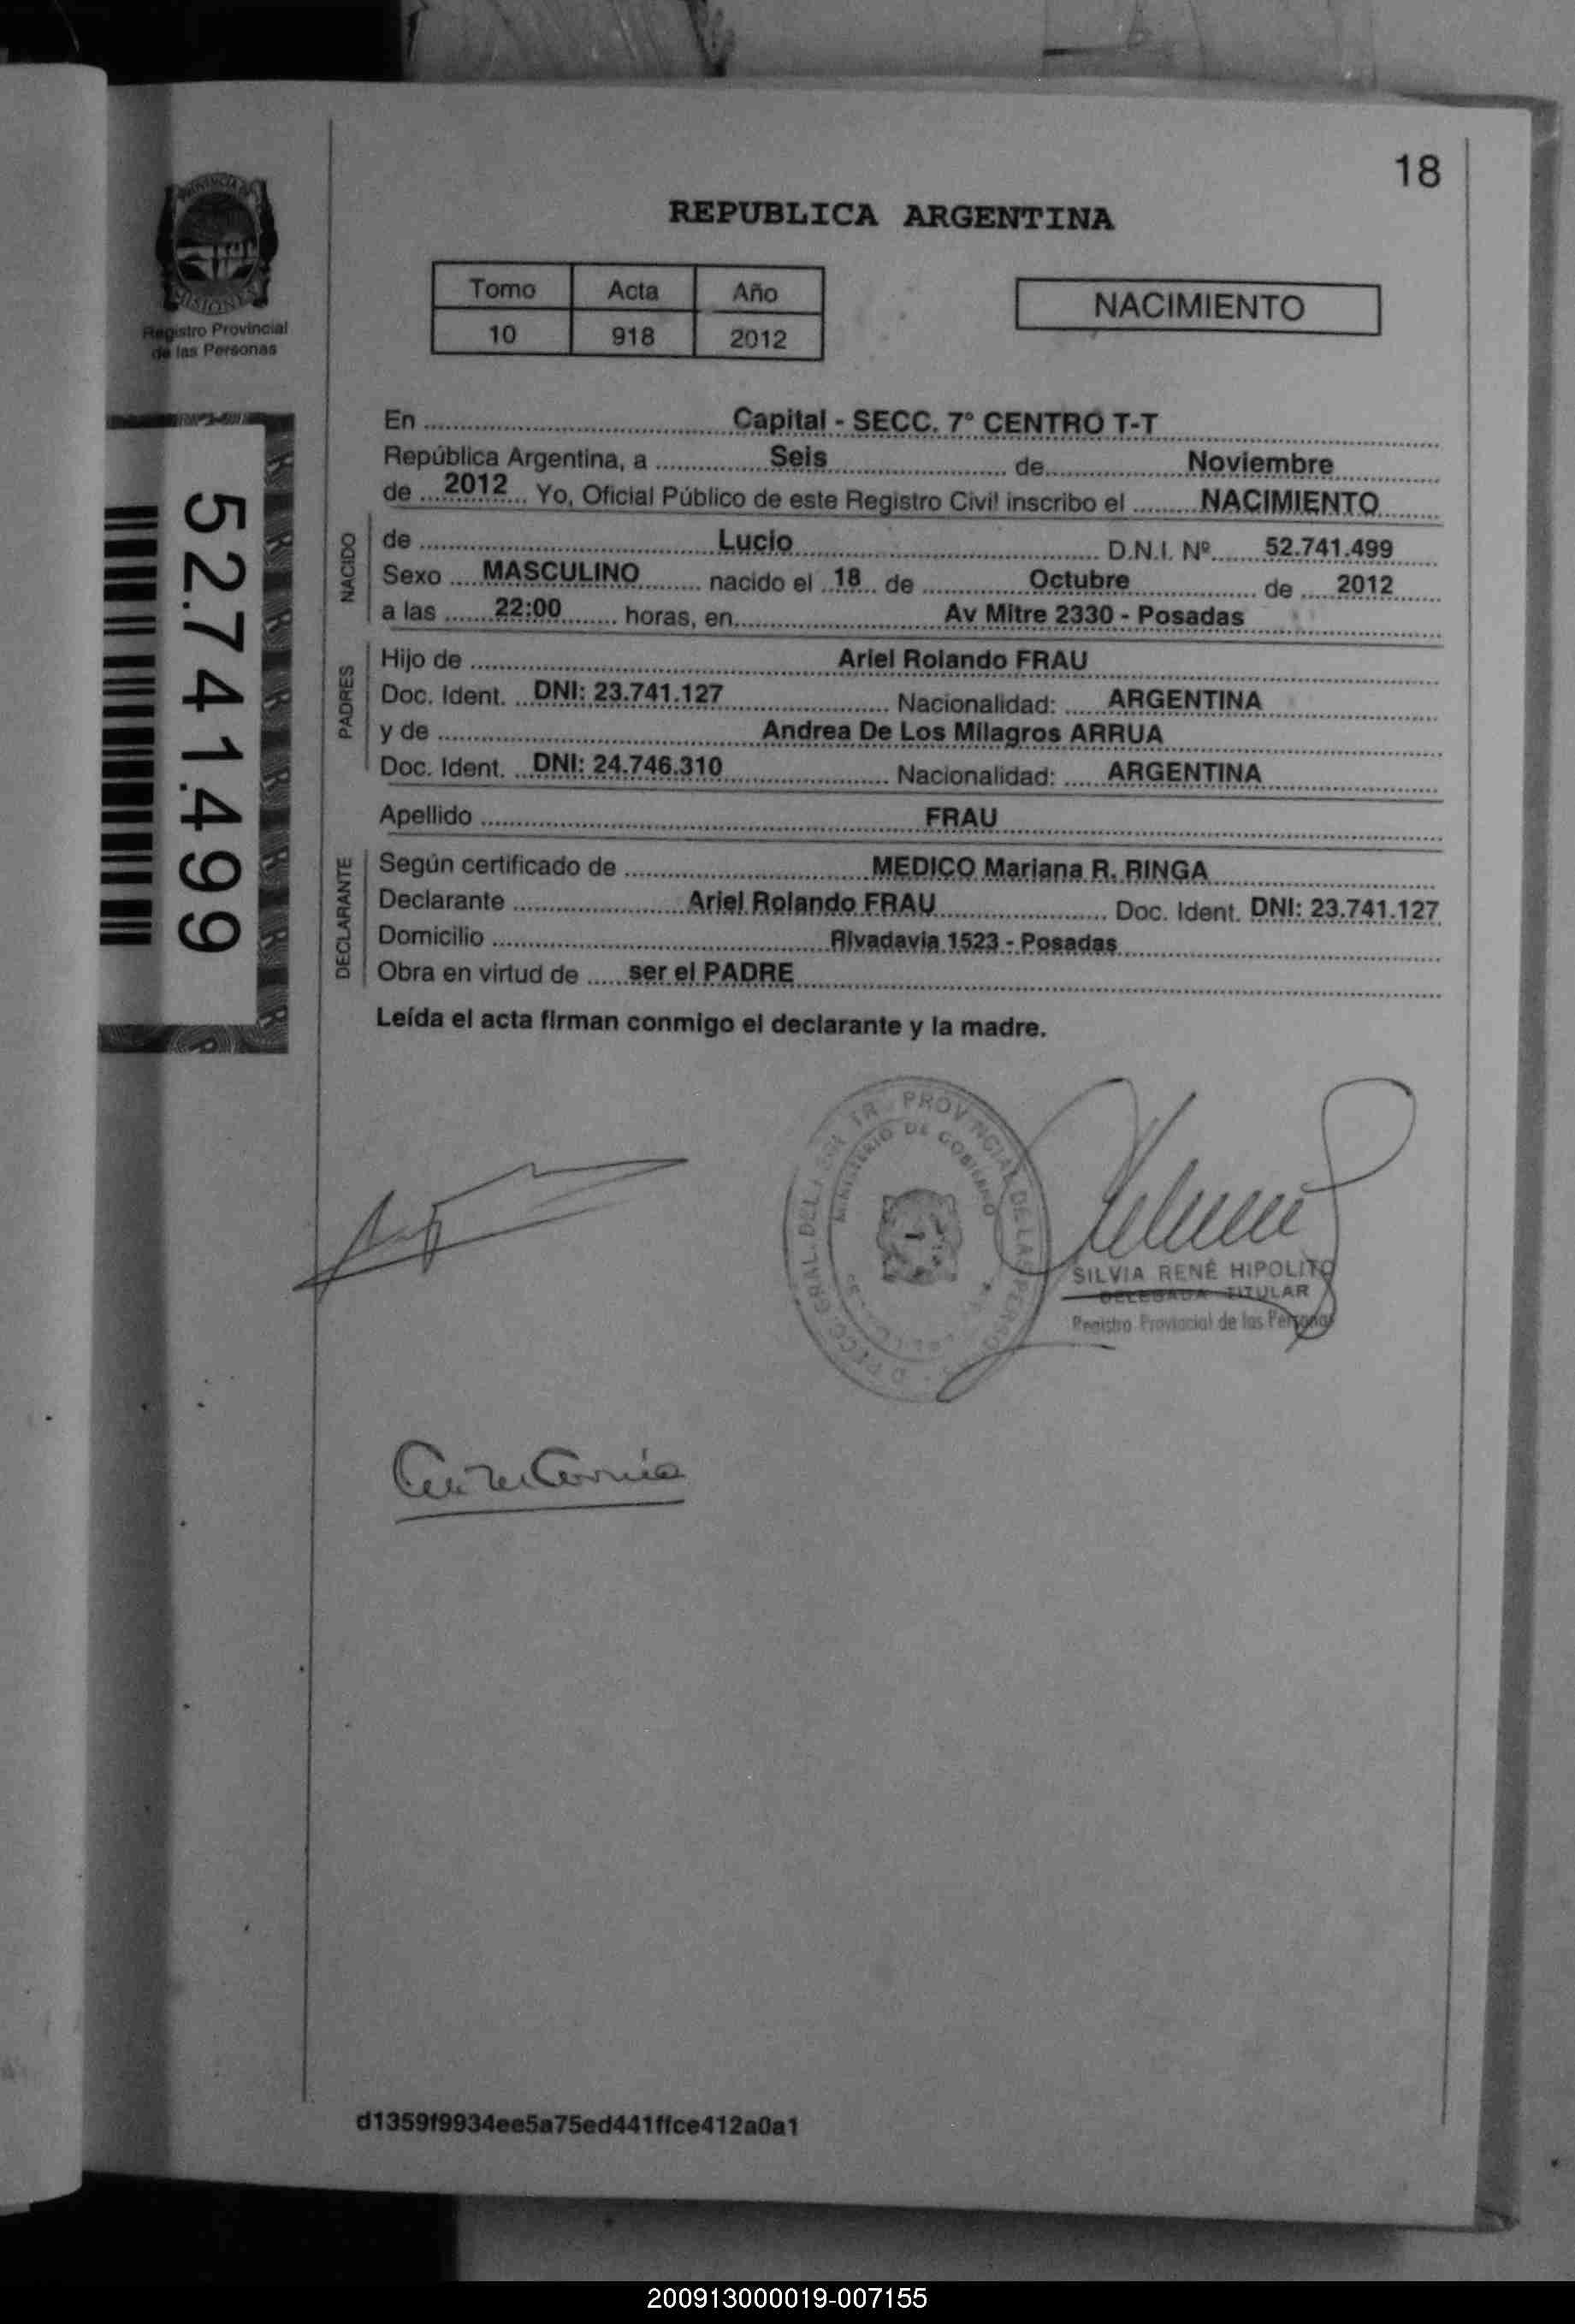 18
PROVINCIA DE
MISIONES
Registro Provincial
de las Personas
REPUBLICA ARGENTINA
Tomo Acta Año
10 918 2012
NACIMIENTO
52.741.499
En Capital - SECC. 7° CENTRO T-T
República Argentina, a Seis de Noviembre
de 2012 Yo, Oficial Público de este Registro Civil inscribo el NACIMIENTO
NACIDO
de Lucio D.N.I. Nº 52.741.499
Sexo MASCULINO nacido el 18 de Octubre de 2012
a las 22:00 horas, en Av Mitre 2330 - Posadas
PADRES
Hijo de Ariel Rolando FRAU
Doc. Ident. DNI: 23.741.127 Nacionalidad: ARGENTINA
y de Andrea De Los Milagros ARRUA
Doc. Ident. DNI: 24.746.310 Nacionalidad: ARGENTINA
Apellido FRAU
DECLARANTE
Según certificado de MEDICO Mariana R. RINGA
Declarante Ariel Rolando FRAU Doc. Ident. DNI: 23.741.127
Domicilio Rivadavia 1523 - Posadas
Obra en virtud de ser el PADRE
Leída el acta firman conmigo el declarante y la madre.
PROVINCIAL DE LAS
MINISTERIO DE GOBIERNO
SILVIA RENÉ HIPOLITO
DELEGADA TITULAR
Registro Provincial de las Personas
d1359f9934ee5a75ed441ffce412a0a1
200913000019-007155